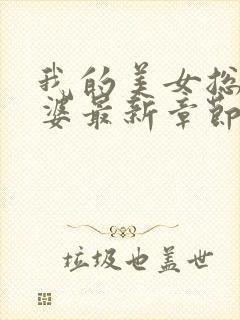 我的美女总
婆最新章节
垃圾也盖世